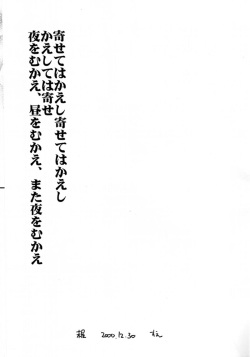 寄せてはかえし寄せてはかえし
かえしては寄せ
夜をむかえ、昼をむかえ、また夜をむかえ
2000.12.30